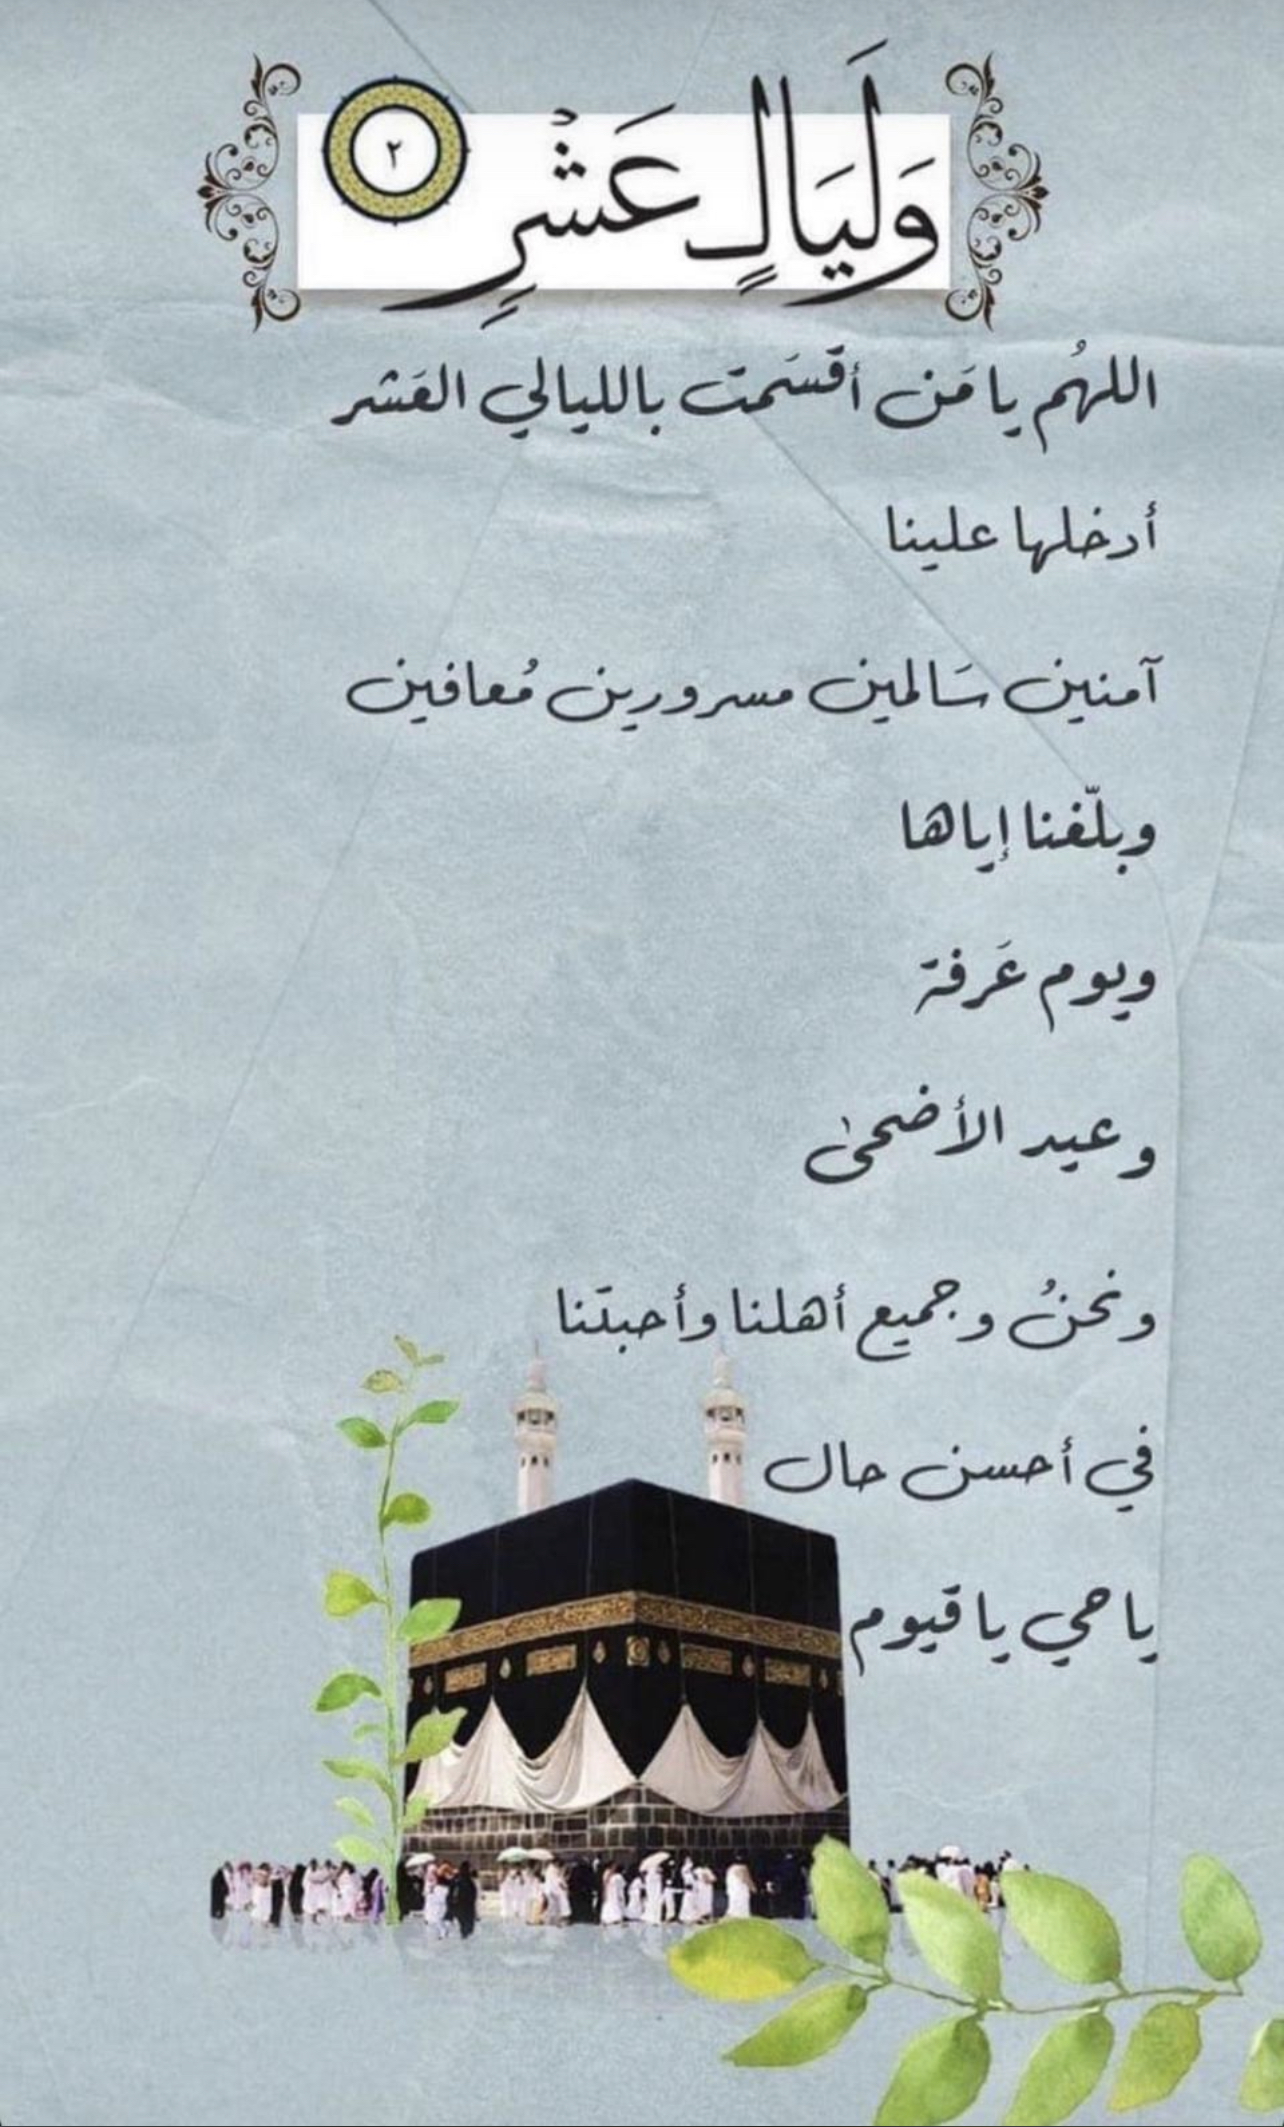 وَلَيَالٍ عَشْرٍ ٢
اللهُم يا مَن أقسَمت بالليالي العَشر
أدخلها علينا
آمنين سَالمين مسرورين مُعافين
وبلّغنا إياها
ويوم عَرفة
وعيد الأضحىٰ
ونحنُ وجميع أهلنا وأحبتَنا
في أحسن حال
يا حي يا قيوم